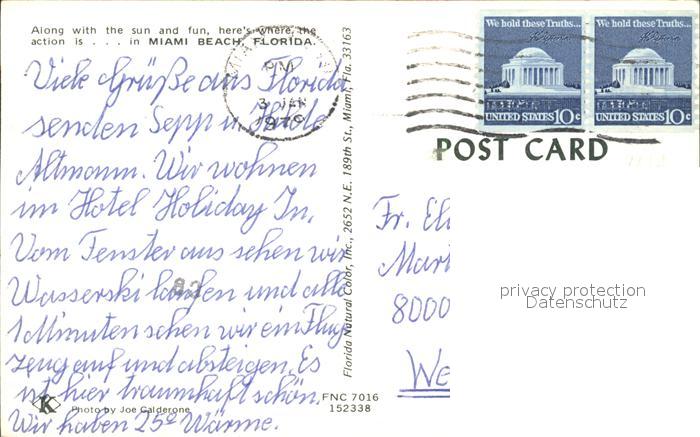 Along with the sun and fun, here's where the
action is . . . in MIAMI BEACH, FLORIDA.
Viele Grüße aus Florida
senden Sepp u.
Altmann. Wir wohnen
im Hotel Holiday In.
Vom Fenster aus sehen wir
Wasserski laufen und alle
1 Minuten sehen wir ein Flug
zeug auf und absteigen. Es
ist hier traumhaft schön.
Wir haben 25° Wärme.
K
Photo by Joe Calderone
FNC 7016
152338
Florida Natural Color, Inc., 2652 N.E. 189th St., Miami, Fla. 33163
PM
3 JAN
1979
We hold these Truths...
UNITED STATES 10c
We hold these Truths...
UNITED STATES 10c
POST CARD
Fr. Eli
Mari
8000
We
privacy protection
Datenschutz